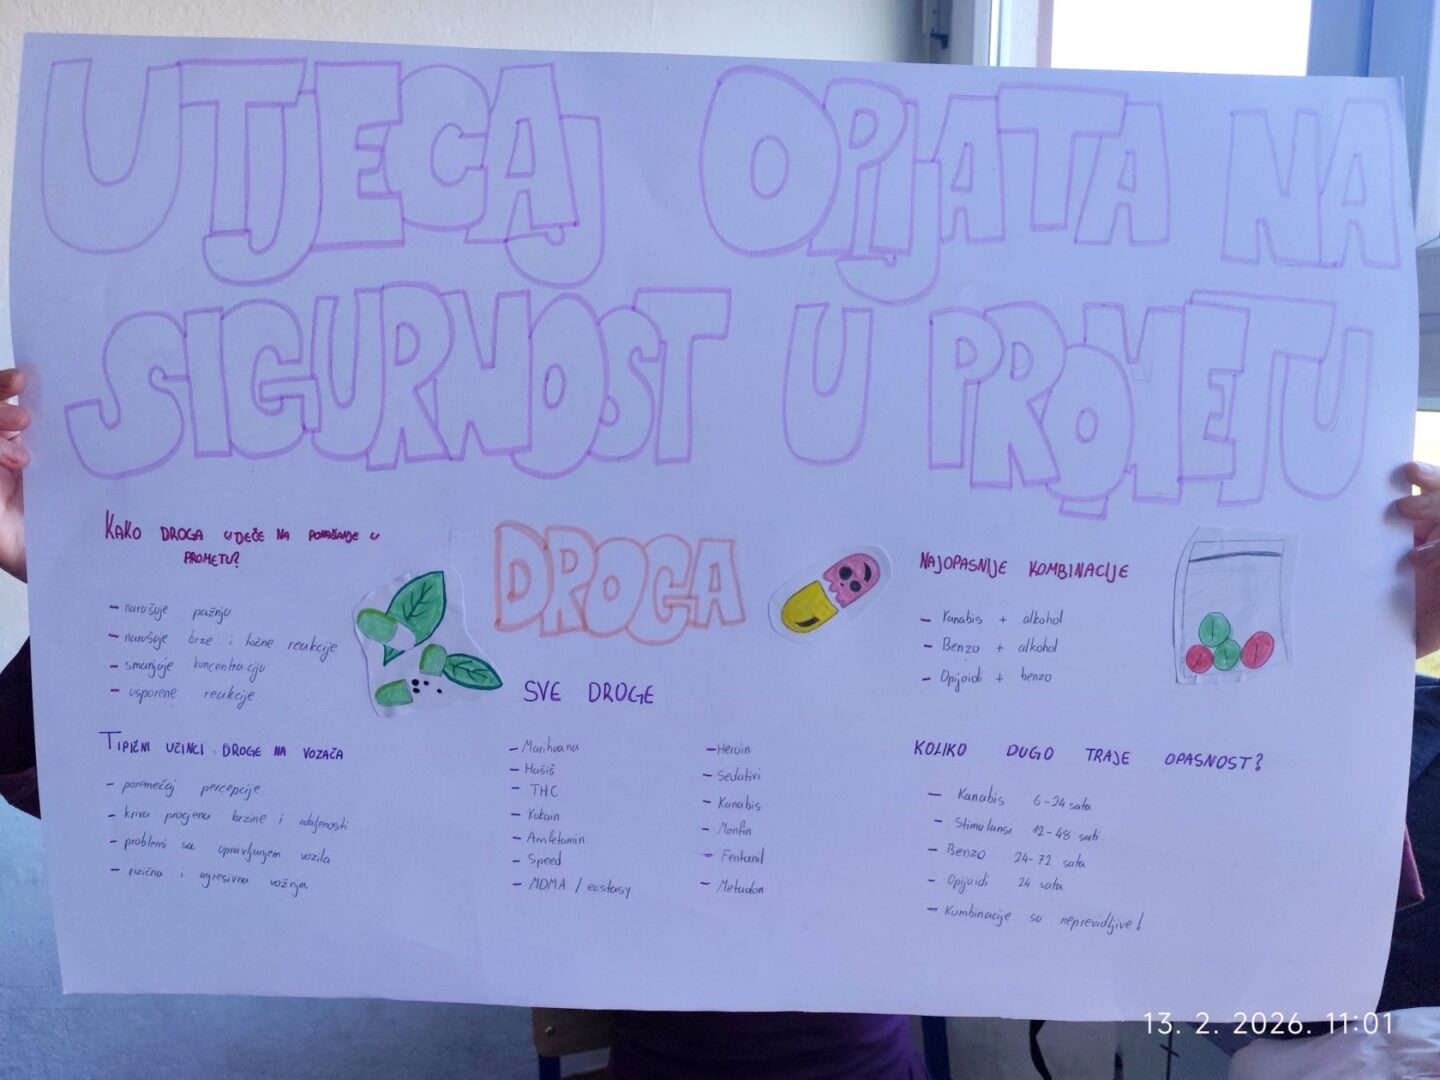 UTJECAJ OPIJATA NA
SIGURNOST U PROMETU
KAKO DROGA UTJEČE NA PONAŠANJE U
PROMETU?
- narušuje pažnju
- narušuje brze i točne reakcije
- smanjuje koncentraciju
- usporene reakcije
TIPIČNI UČINCI DROGE NA VOZAČA
- poremećaj percepcije
- kriva procjena brzine i udaljenosti
- problemi sa upravljanjem vozila
- rizična i agresivna vožnja
DROGA
SVE DROGE
- Marihuana
- Hašiš
- THC
- Kokain
- Amfetamin
- Speed
- MDMA / ecstasy
- Heroin
- Sedativi
- Kanabis
- Morfin
- Fentanil
- Metadon
NAJOPASNIJE KOMBINACIJE
- Kanabis + alkohol
- Benzo + alkohol
- Opijoidi + benzo
KOLIKO DUGO TRAJE OPASNOST?
- Kanabis 6-24 sata
- Stimulansi 12-48 sati
- Benzo 24-72 sata
- Opijoidi 24 sata
- Kombinacije su nepredvidljive!
13. 2. 2026. 11:01